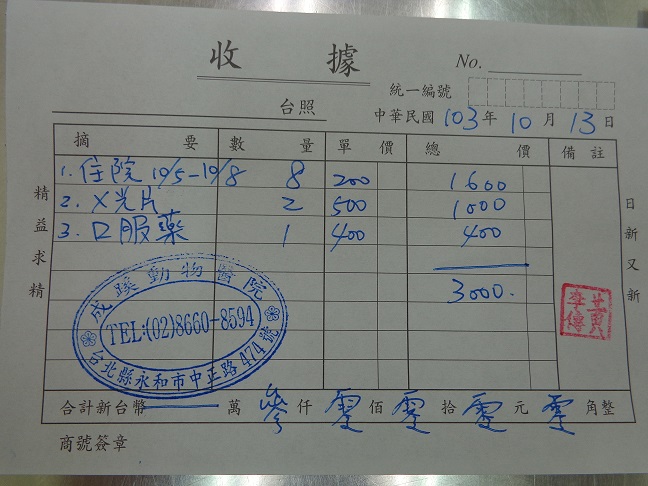 收據
No.
統一編號
台照
中華民國 103 年 10 月 13 日
摘要 數量 單價 總價 備註
1. 住院 10/5-10/8 8 200 1600
2. X光片 2 500 1000
3. 口服藥 1 400 400
3000.
精益求精
日新又新
成蹊動物醫院
TEL:(02)8660-8594
台北縣永和市中正路474號
合計新台幣 萬 參 仟 零 佰 零 拾 零 元 零 角整
商號簽章